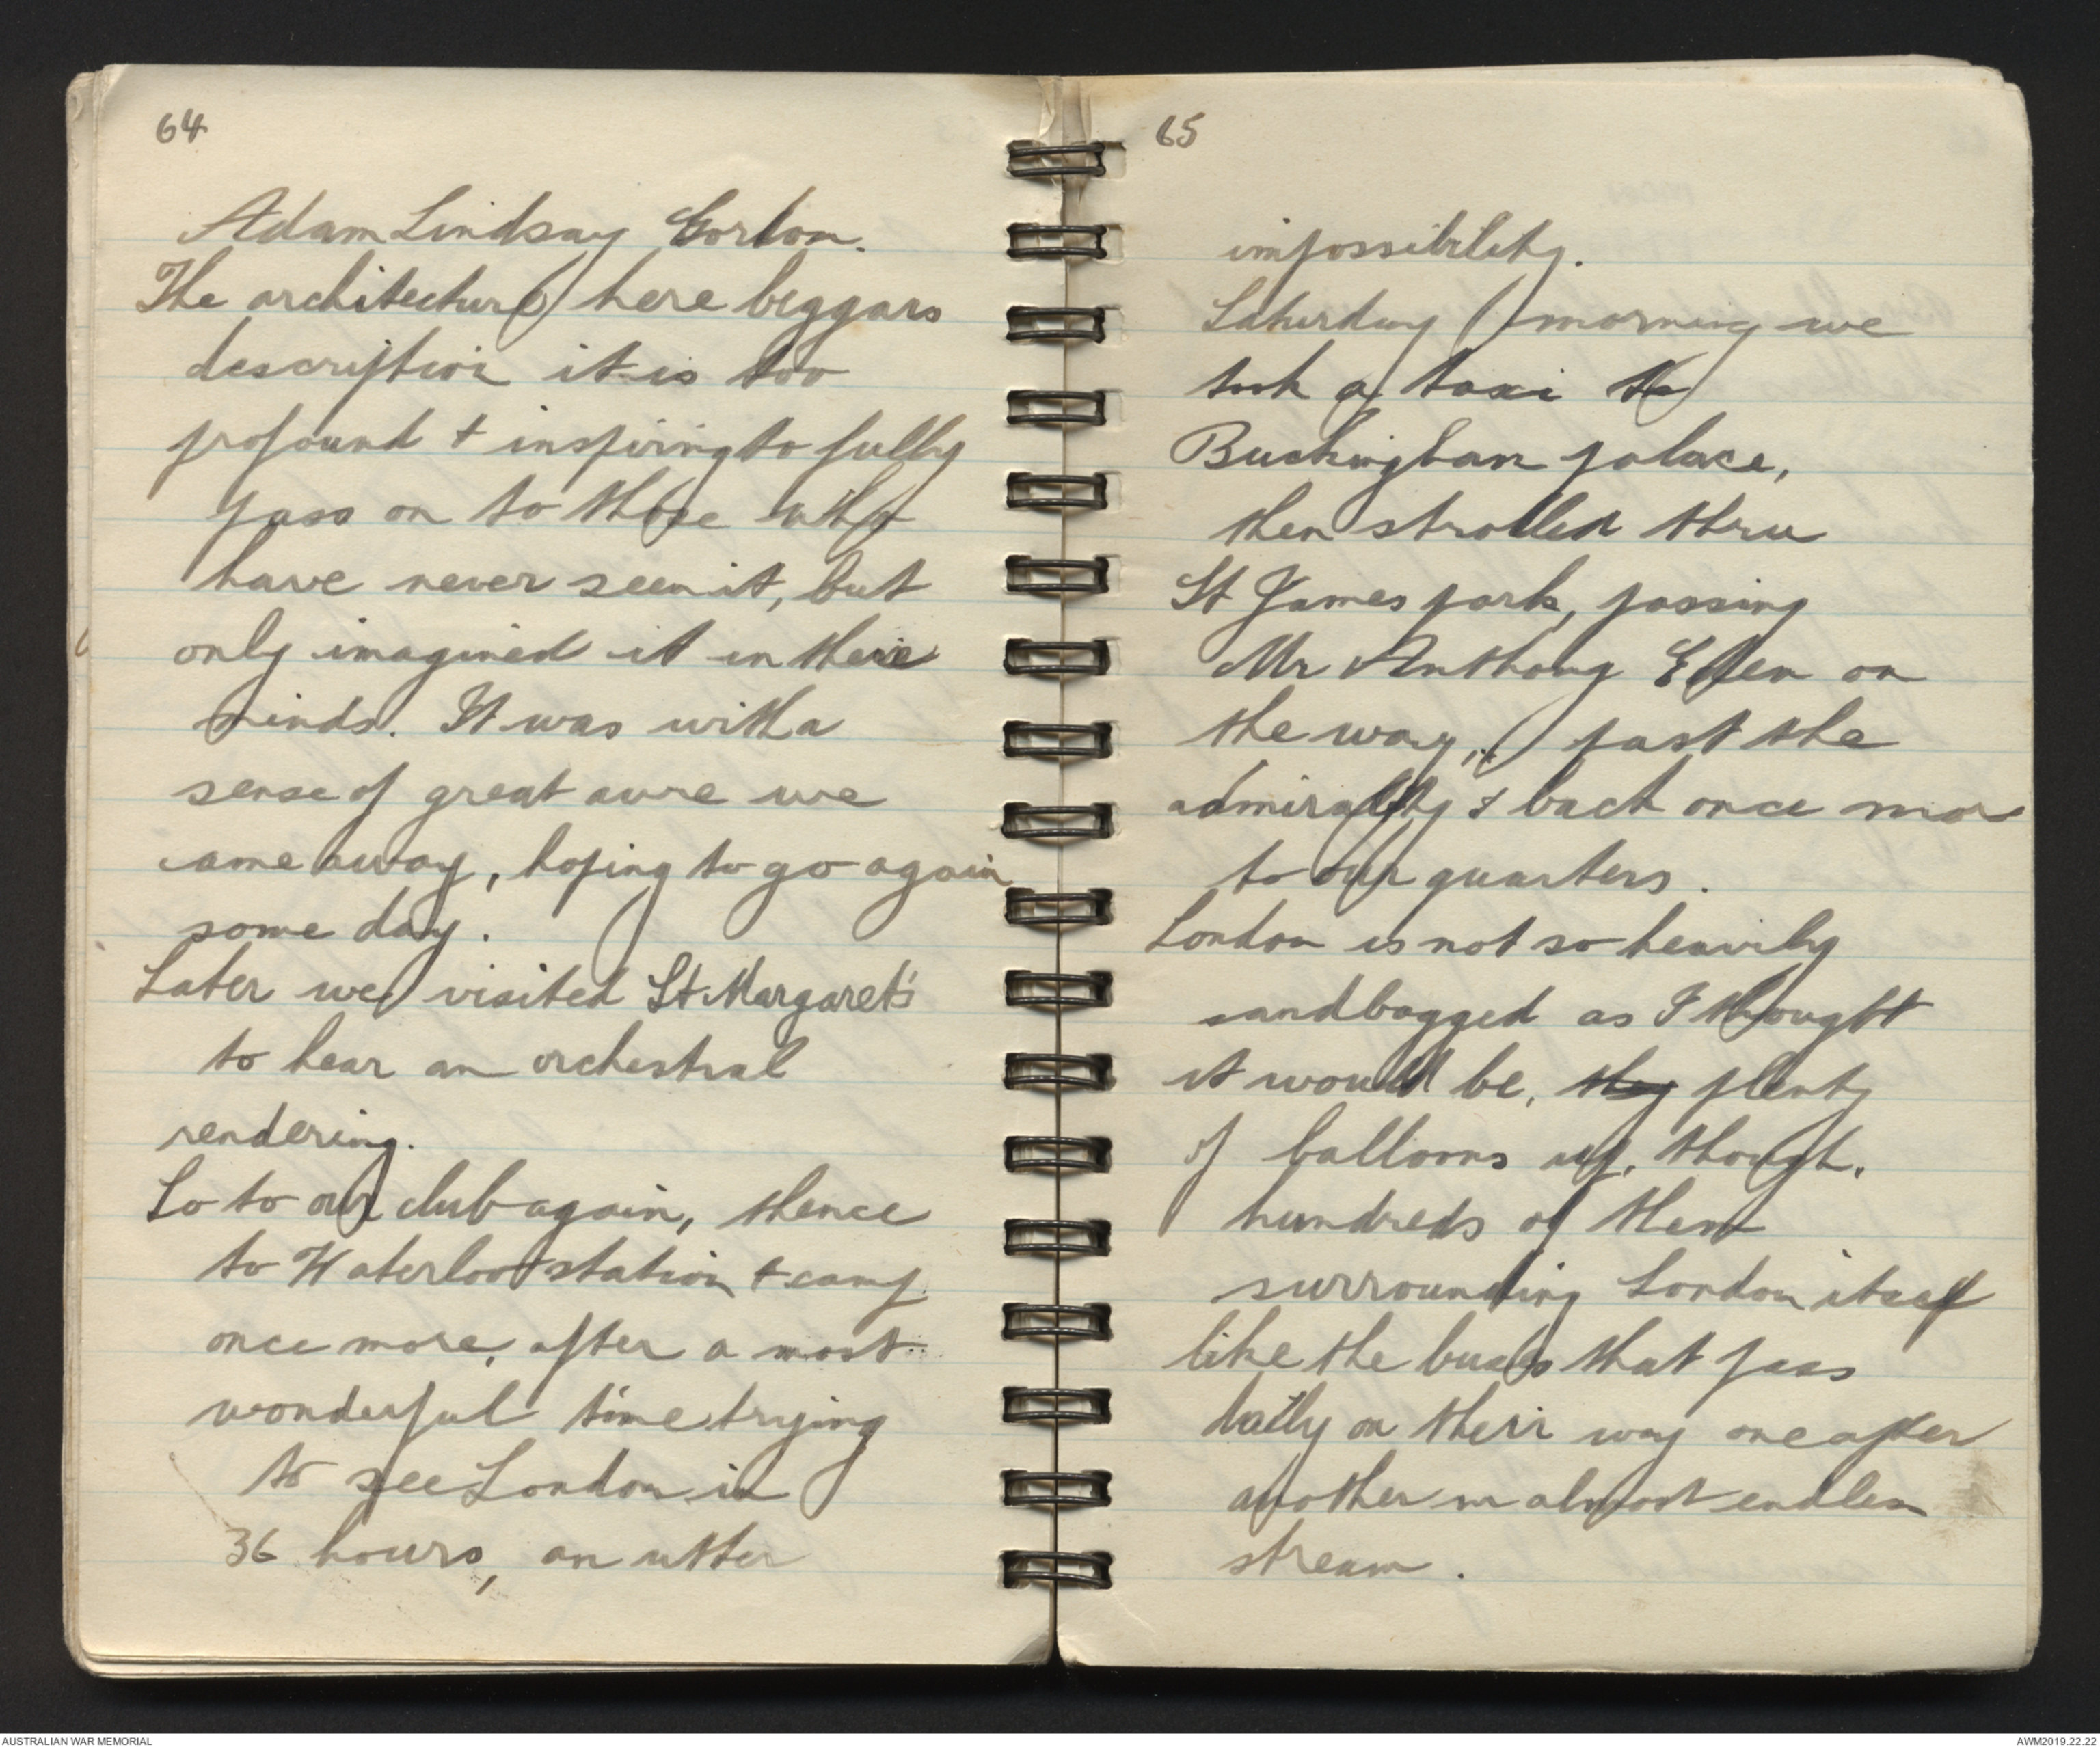 64
Adam Lindsay Gordon.
The architecture here beggars
description it is too
profound + inspiring to fully
pass on to those who
have never seen it, but
only imagined it in their
minds. It was with a
sense of great awe we
came away, hoping to go again
some day.
Later we visited St. Margaret's
to hear an orchestral
rendering.
So to our club again, thence
to Waterloo station + camp
once more, after a most
wonderful time trying
to see London in
36 hours, an utter
65
impossibility.
Saturday morning we
took a taxi to
Buckingham palace,
then strolled thru
St James park, passing
Mr Anthony Eden on
the way, past the
admiralty & back once more
to our quarters.
London is not so heavily
sandbagged as I thought
it would be, they plenty
of balloons up, though,
hundreds of them
surrounding London itself
like the buses that pass
daily on their way one after
another in almost endless
stream.
AUSTRALIAN WAR MEMORIAL
AWM2019.22.22